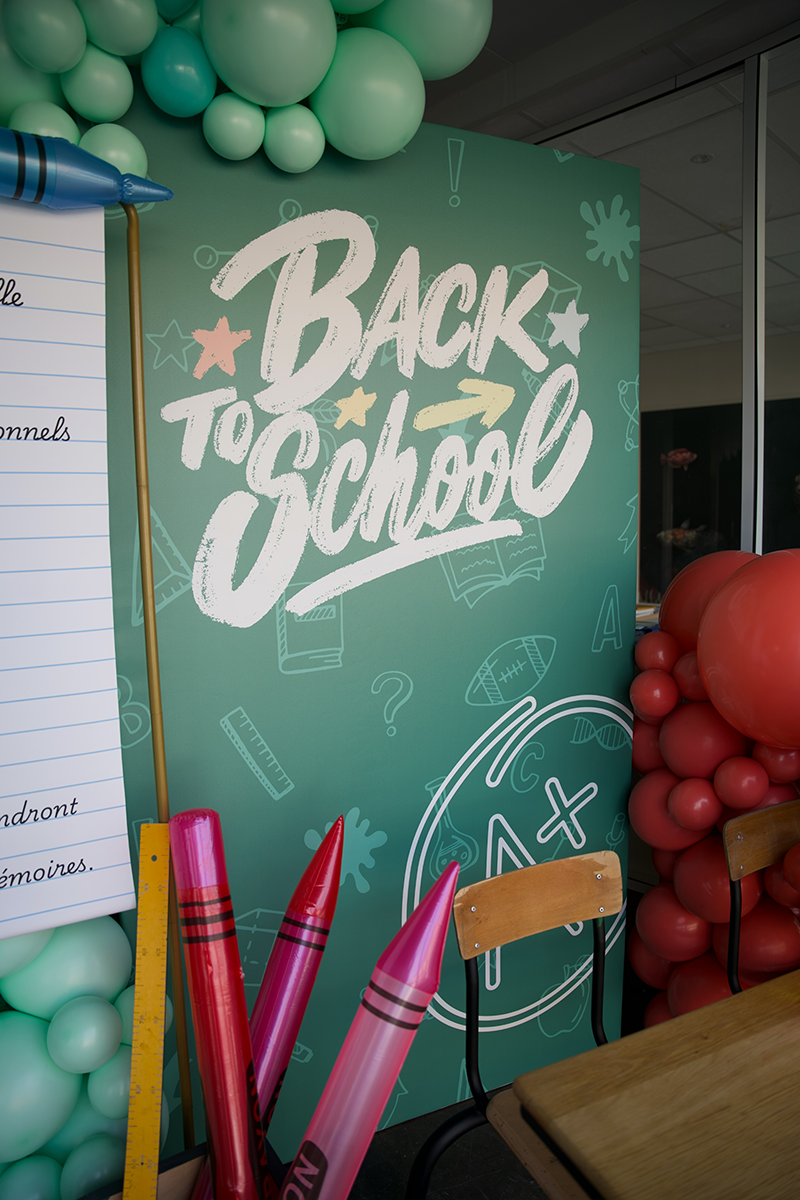 Back
to
School
lle
onnels
ndront
émoires.
B
A
C
A+
NO